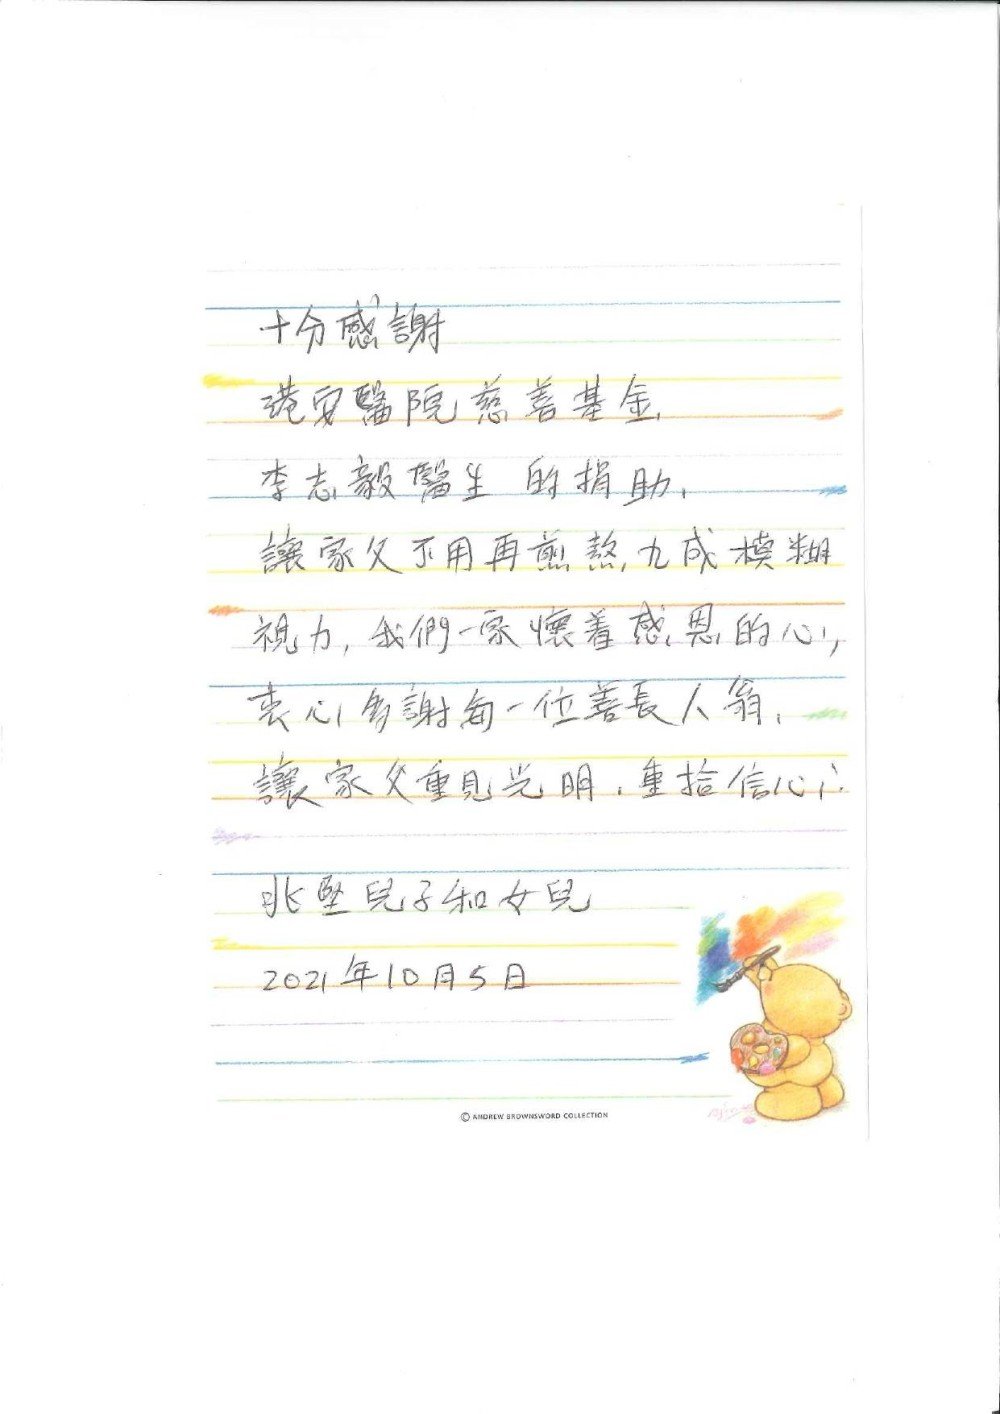 十分感謝
港安醫院慈善基金
李志毅醫生 的捐助,
讓家父不用再煎熬,九成模糊
視力,我們一家懷着感恩的心,
衷心多謝每一位善長人翁,
讓家父重見光明,重拾信心!
兆堅兒子和女兒
2021年10月5日
© ANDREW BROWNSWORD COLLECTION